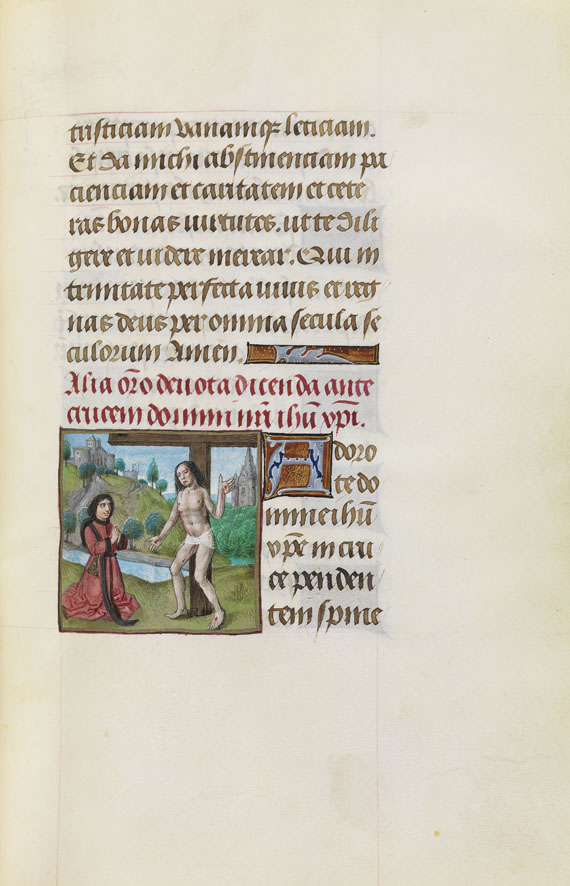 tristiciam vanamqꝫ leticiam.
Et da michi abstinenciam pa
cienciam et caritatem et cete
ras bonas uirtutes. ut te dili
gere et uidere merear. Qui in
trinitate perfecta uiuis et reg
nas deus per omnia secula se
culorum Amen.
Alia or̃o deuota dicenda ante
crucem domini nr̃i ihũ xp̃i.
Adoro
te do
mine ihũ
xp̃e in cru
ce penden
tem spine